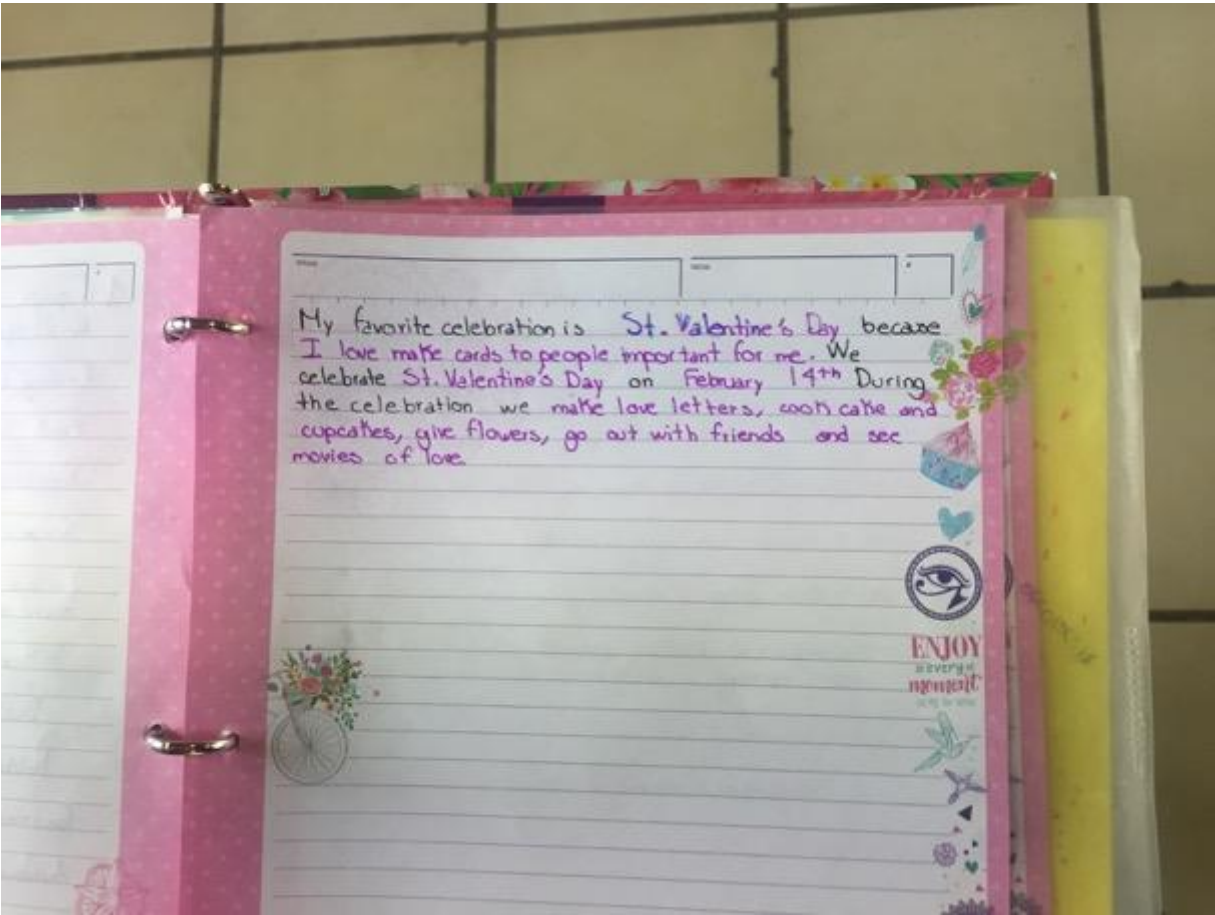 My favorite celebration is St. Valentine's Day becase
I love make cards to people important for me. We
celebrate St. Valentine's Day on February 14th During
the celebration we make love letters, cook cake and
cupcakes, give flowers, go out with friends and see
movies of love
ENJOY
every
moment